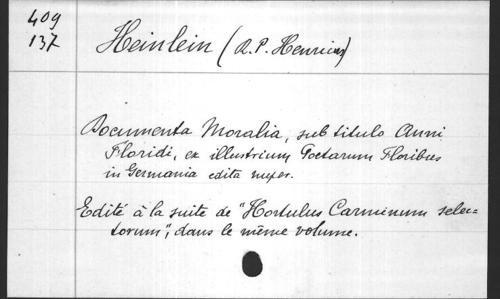 409
137
Heinlein (R.P. Henricus)
Documenta Moralia, sub titulo Anni
Floridi, ex illustrium Poetarum Floribus
in Germania edita nuper.
Edité à la suite de "Hortulus Carminum selec=
torum", dans le même volume.